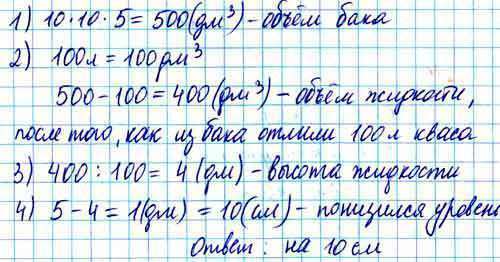 1) 10·10·5=500(дм³)-объём бака
2) 100л=100дм³
500-100=400(дм³)-объём жидкости,
после того, как из бака отлили 100л кваса
3) 400:100=4(дм)-высота жидкости
4) 5-4=1(дм)=10(см)-понизился уровень
Ответ: на 10см